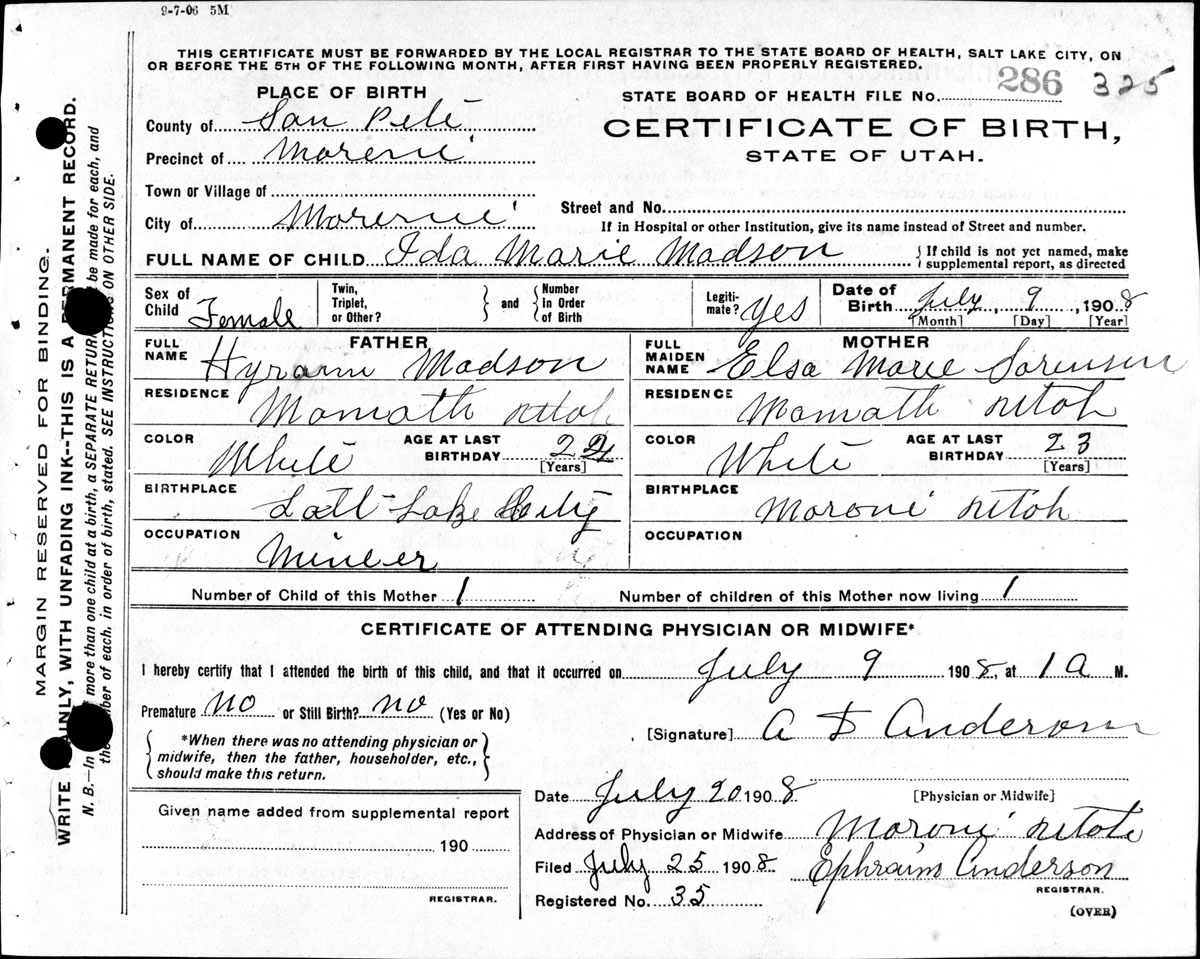 9-7-06 5M
THIS CERTIFICATE MUST BE FORWARDED BY THE LOCAL REGISTRAR TO THE STATE BOARD OF HEALTH, SALT LAKE CITY, ON
OR BEFORE THE 5TH OF THE FOLLOWING MONTH, AFTER FIRST HAVING BEEN PROPERLY REGISTERED.
286 325
PLACE OF BIRTH
STATE BOARD OF HEALTH FILE No.
County of San Pete
CERTIFICATE OF BIRTH,
Precinct of Moreni
STATE OF UTAH.
Town or Village of
City of Moreni
Street and No.
If in Hospital or other Institution, give its name instead of Street and number.
FULL NAME OF CHILD Ida Marie Madson
{If child is not yet named, make
supplemental report, as directed
Sex of Child Female
Twin, Triplet, or Other?
and
Number In Order of Birth
Legiti-mate? Yes
Date of Birth July 9, 1908
[Month] [Day] [Year]
FATHER
FULL NAME Hyram Madson
RESIDENCE Momath Utah
COLOR White
AGE AT LAST BIRTHDAY 24
[Years]
BIRTHPLACE Salt Lake City
OCCUPATION Mineer
MOTHER
FULL MAIDEN NAME Elsa Marie Sorensen
RESIDENCE Momath Utah
COLOR White
AGE AT LAST BIRTHDAY 23
[Years]
BIRTHPLACE Moroni Utah
OCCUPATION
Number of Child of this Mother 1
Number of children of this Mother now living 1
CERTIFICATE OF ATTENDING PHYSICIAN OR MIDWIFE*
I hereby certify that I attended the birth of this child, and that it occurred on July 9 1908, at 1 a M.
Premature No or Still Birth? no (Yes or No)
[Signature] Anderson
*When there was no attending physician or
midwife, then the father, householder, etc.,
should make this return.
Date July 20 1908
[Physician or Midwife]
Given name added from supplemental report
190
REGISTRAR.
Address of Physician or Midwife Moroni Utah
Filed July 25 1908 Ephraim Anderson
REGISTRAR.
Registered No. 35
(OVER)
MARGIN RESERVED FOR BINDING.
WRITE AINLY, WITH UNFADING INK--THIS IS A PERMANENT RECORD.
N. B.—In more than one child at a birth, a SEPARATE RETURN be made for each, and
the ber of each, in order of birth, stated. SEE INSTRUCTIONS ON OTHER SIDE.